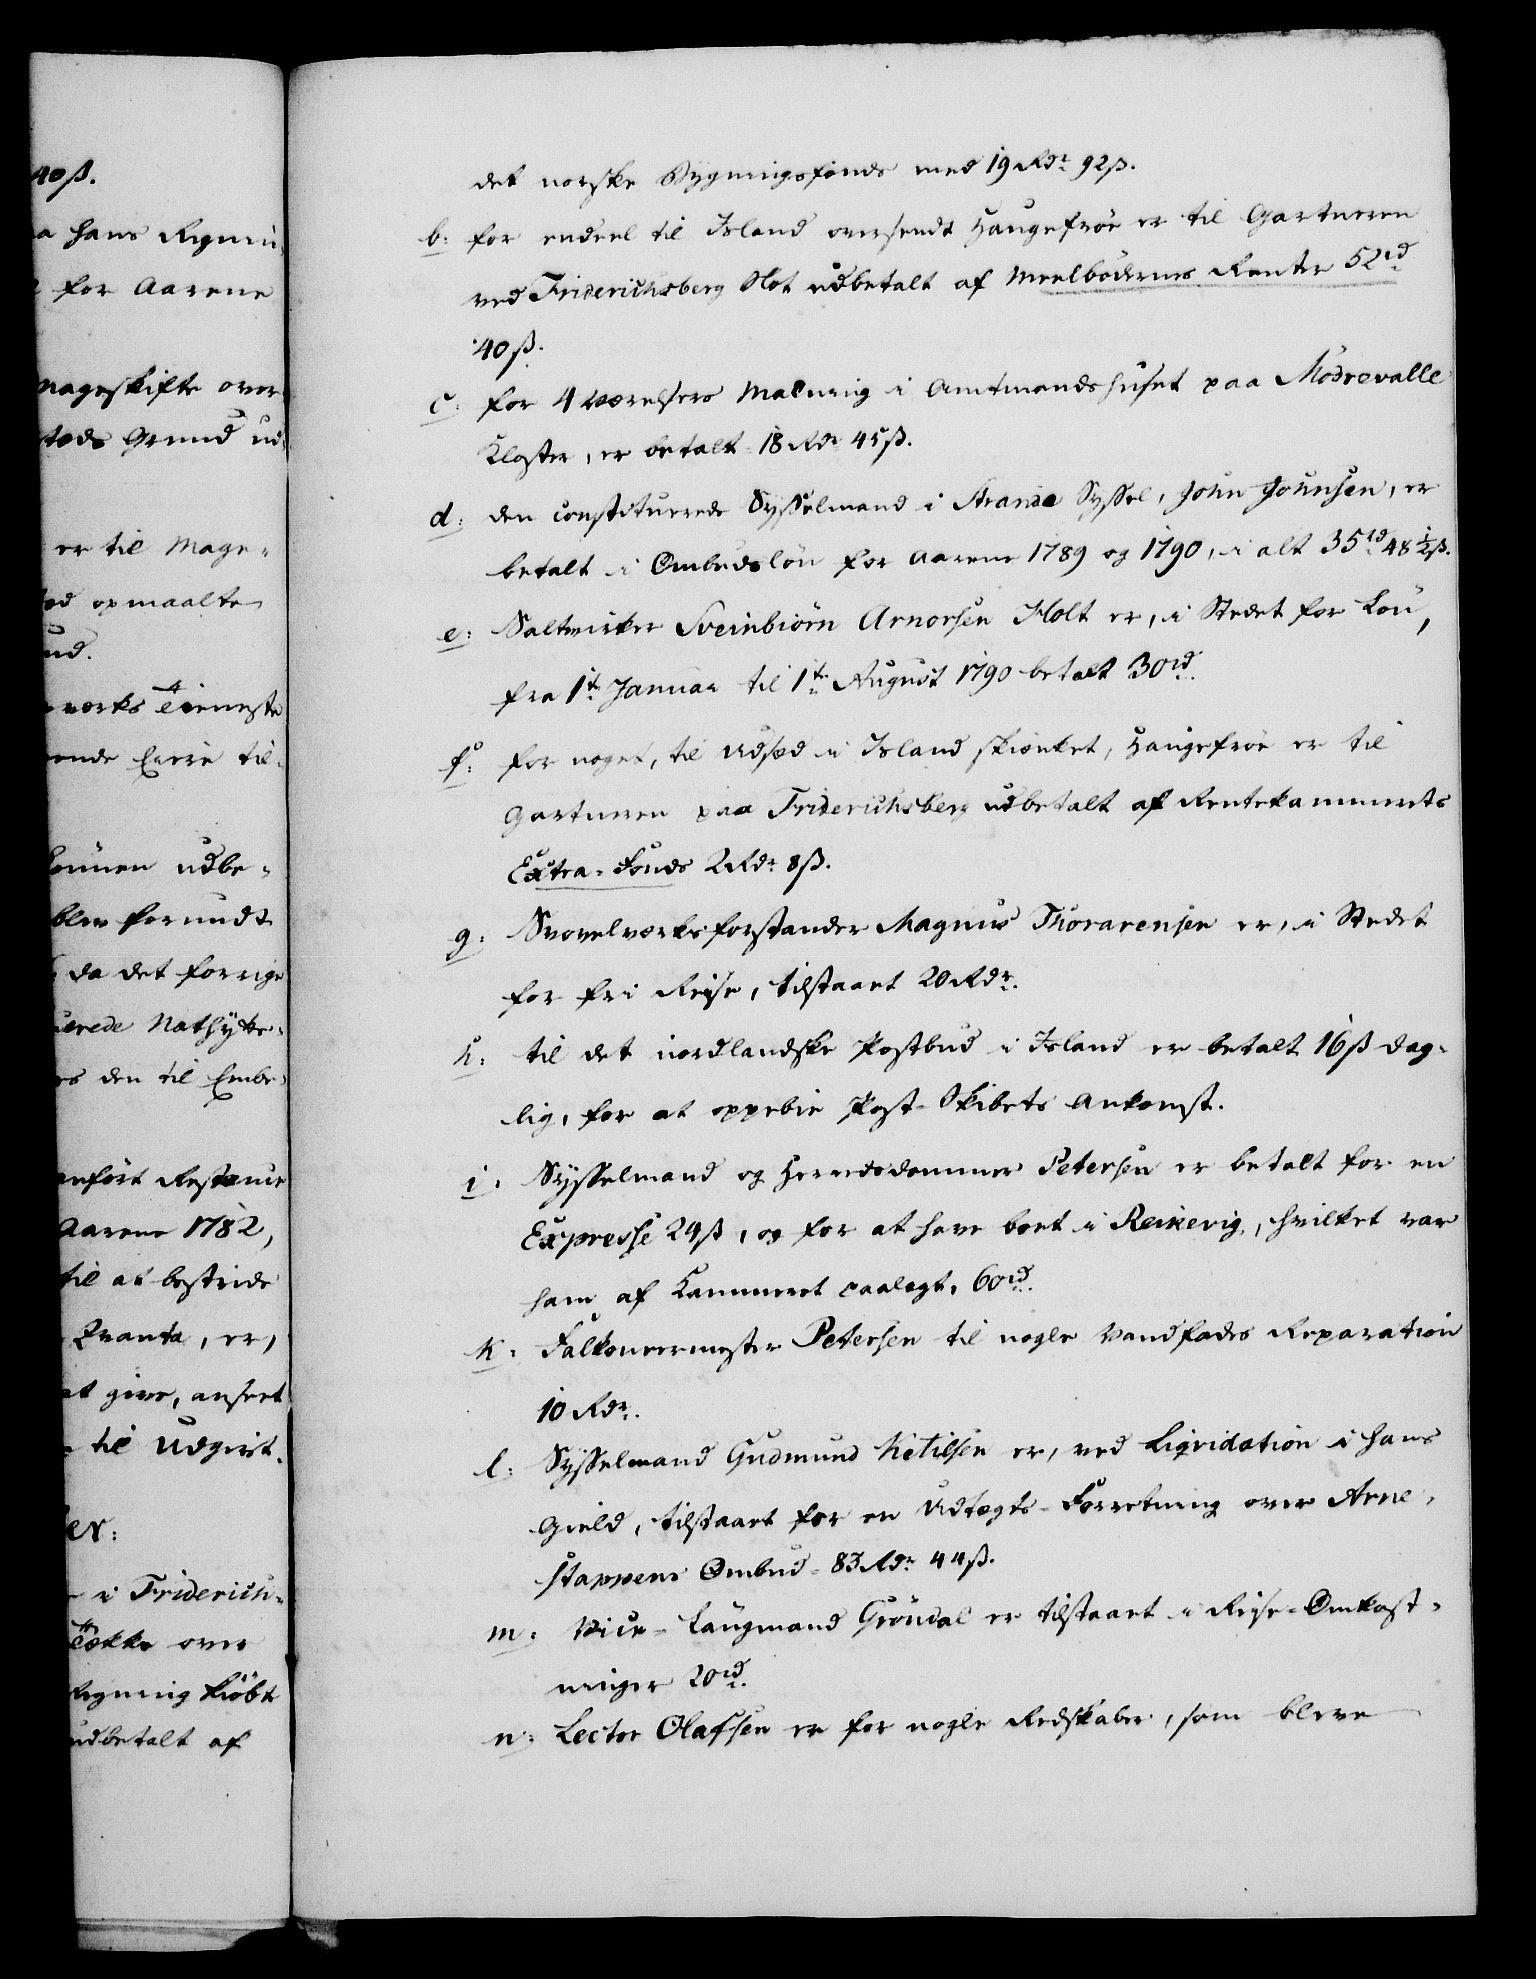 40ß.
a hans Regnin-
for Aarene
Mageskifte over
steds Grund ud-
er til Mage-
ed opmaalte
und.
værks Tieneste
ende Eiere til-
Lönnen udbe-
blev forundt
da det forrige
uerede Nathytte-
es den til Embe-
anfört Restance
Aarene 1782,
til at bestride
Qvanta, er,
at give, anseet
til Udgivt.
er:
i Friderich-
Tække over
Regning kiöbt
udbetalt af
det norske Bygningsfonds med 19 Rdr 92ß.
b: for endeel til Island oversendt Haugefröe er til Gartneren
ved Friderichsberg Slot udbetalt af Meelbödernes Rente 52rd
40ß.
c: for 4 Værelsers Malning i Amtmandshuset paa Mödrevalle
Kloster, er betalt 18 Rdr 45ß.
d: den constituerede Sysselmand i Strande Syssel, John Johnsen, er
betalt i Ombudslön for Aarene 1789 og 1790, i alt 35rd 48½ß.
e: Saltvirker Sveinbiörn Arnorsen Holt er, i Stedet for Lön,
fra 1te Januar til 1te August 1790 betalt 30rd.
f: for noget, til Udsæd i Island skienket, Haugefröe er til
Gartneren paa Friderichsberg udbetalt af Rentekammerets
Extra-Fonds 2 Rdr 8ß.
g: Svovelværksforstander Magnus Thorarensen er, i Stedet
for fri Reise, tilstaaet 20 Rdr.
h: til det nordlandske Postbud i Island er betalt 16ß dag-
lig, for at oppebie Post-Skibets Ankomst.
i: Sysselmand og Herredsdommer Petersen er betalt for en
Expresse 24ß, og for at have boet i Reikevig, hvilket var
ham af Kammeret paalagt, 60rd.
k: Falkoneermester Petersen til nogle Vandfades Reparation
10 Rdr.
l: Sysselmand Gudmund Ketilsen er, ved Liqvidation i hans
Gield, tilstaaet for en Udtægts-Forretning over Arne-
stappens Ombud 83 Rdr 44ß.
m: Vice-Laugmand Gröndal er tilstaaet i Reise-Omkost-
ninger 20rd.
n: Lector Olafsen er for nogle Redskaber, som bleve